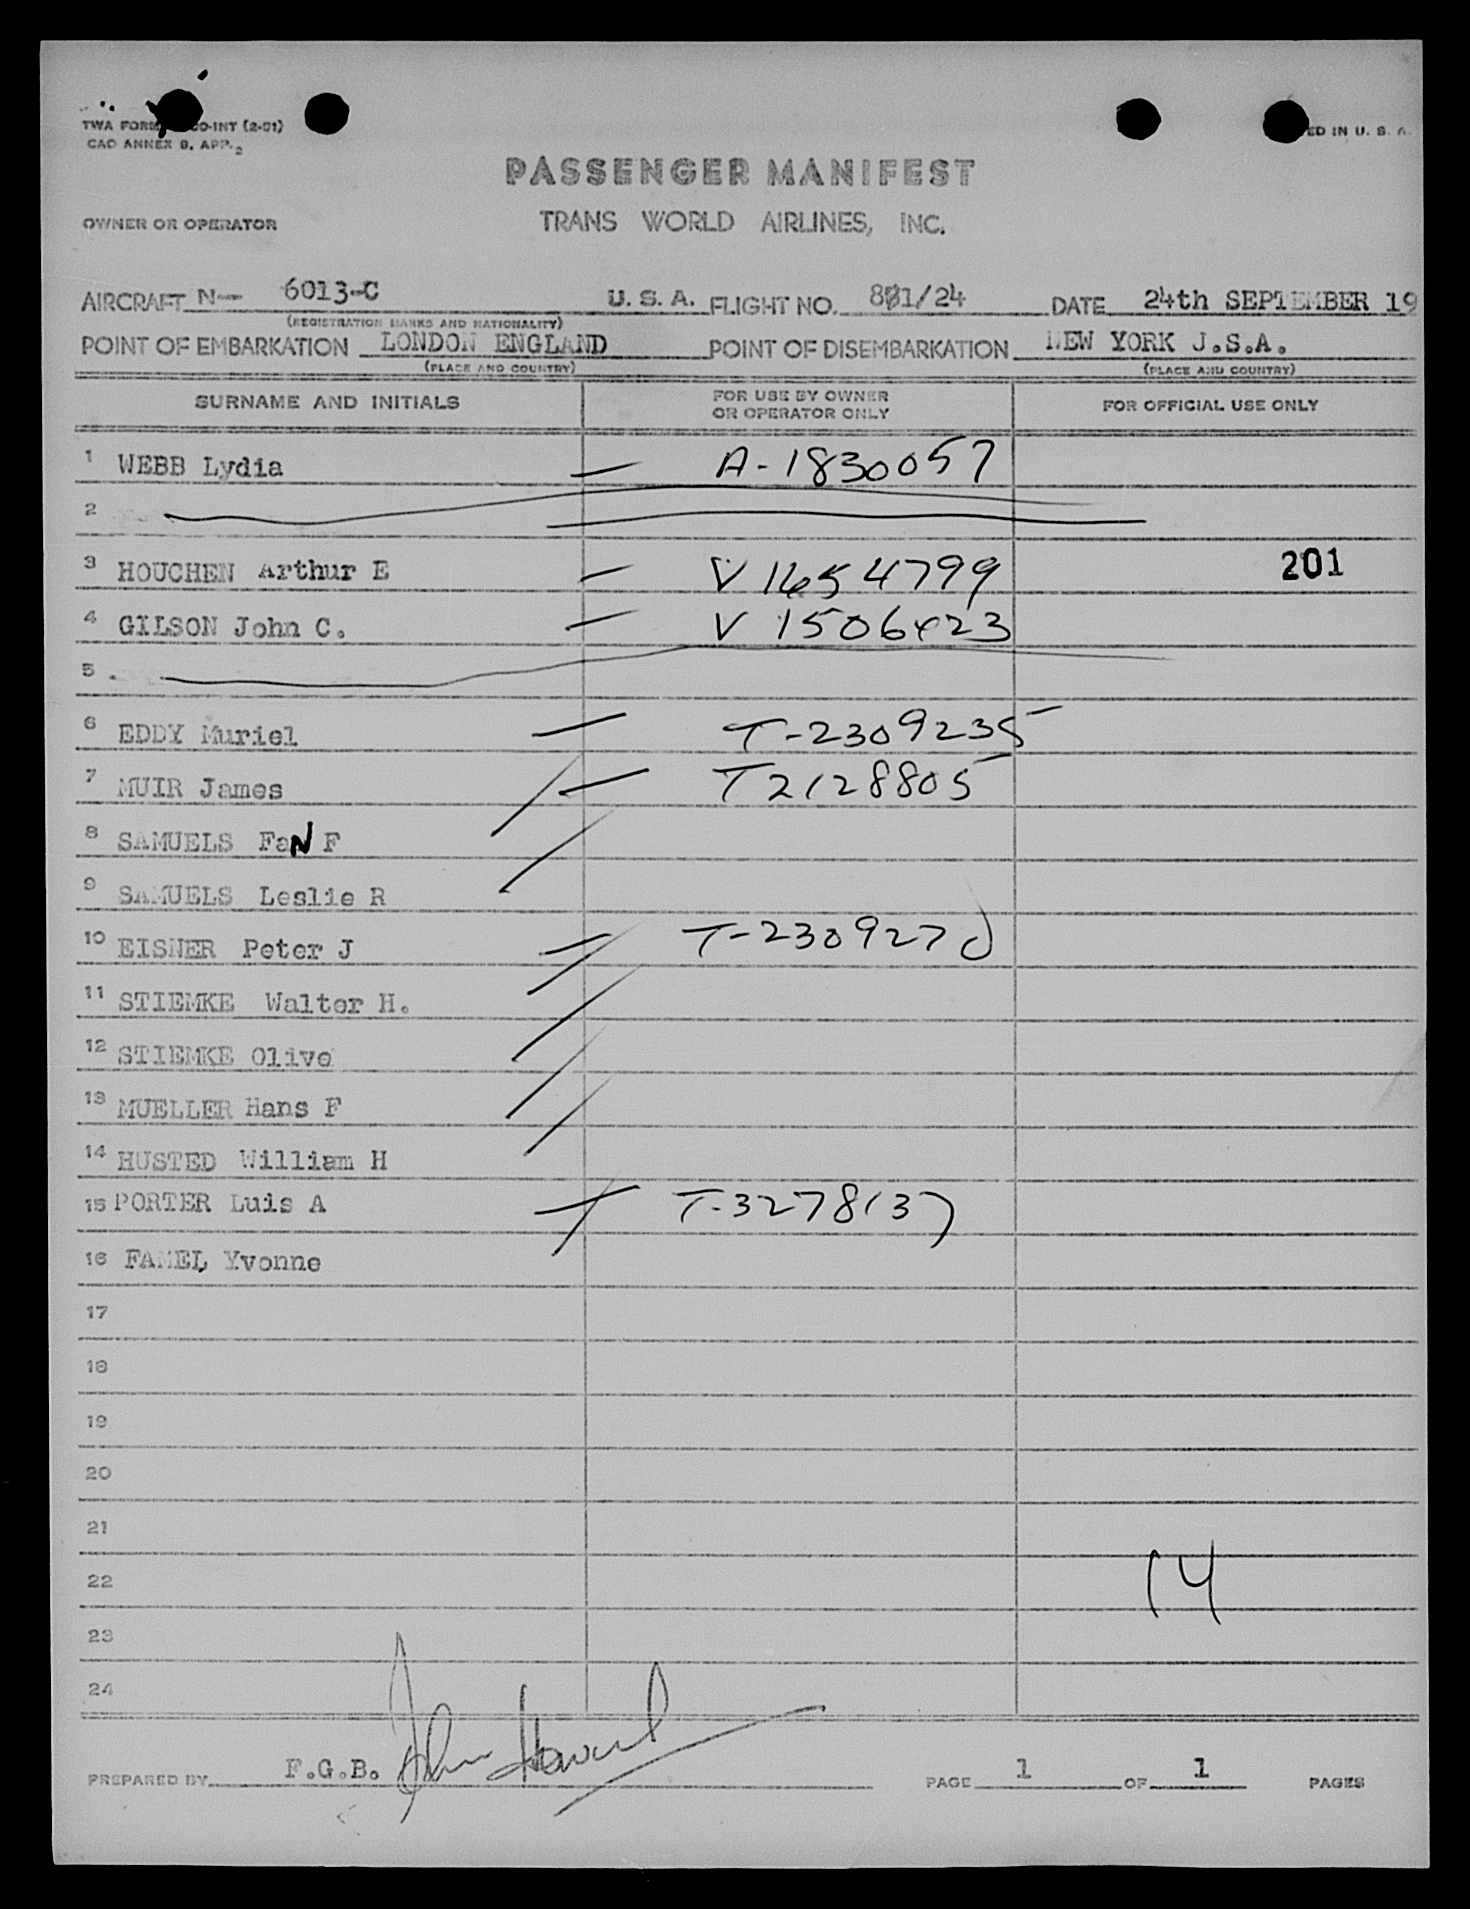 TWA FORM O-INT (2-51)
CAO ANNEX 9, APP. 2
ED IN U. S. A.
PASSENGER MANIFEST
OWNER OR OPERATOR TRANS WORLD AIRLINES, INC.
AIRCRAFT N-- 6013-C U. S. A. FLIGHT NO. 881/24 DATE 24th SEPTEMBER 19
(REGISTRATION MARKS AND NATIONALITY)
POINT OF EMBARKATION LONDON ENGLAND POINT OF DISEMBARKATION NEW YORK U.S.A.
(PLACE AND COUNTRY) (PLACE AND COUNTRY)
SURNAME AND INITIALS FOR USE BY OWNER OR OPERATOR ONLY FOR OFFICIAL USE ONLY
1 WEBB Lydia — A-1830057
2
3 HOUCHEN Arthur E — V 1654799 201
4 GILSON John C. — V 1506423
5
6 EDDY Muriel — T-2309235
7 MUIR James — T2128805
8 SAMUELS FaN F
9 SAMUELS Leslie R
10 EISNER Peter J — T-2309270
11 STIEMKE Walter H.
12 STIEMKE Olive
13 MUELLER Hans F
14 HUSTED William H
15 PORTER Luis A — T-3278137
16 FAMEL Yvonne
17
18
19
20
21
22 14
23
24
PREPARED BY F.G.B. John Howard PAGE 1 OF 1 PAGES